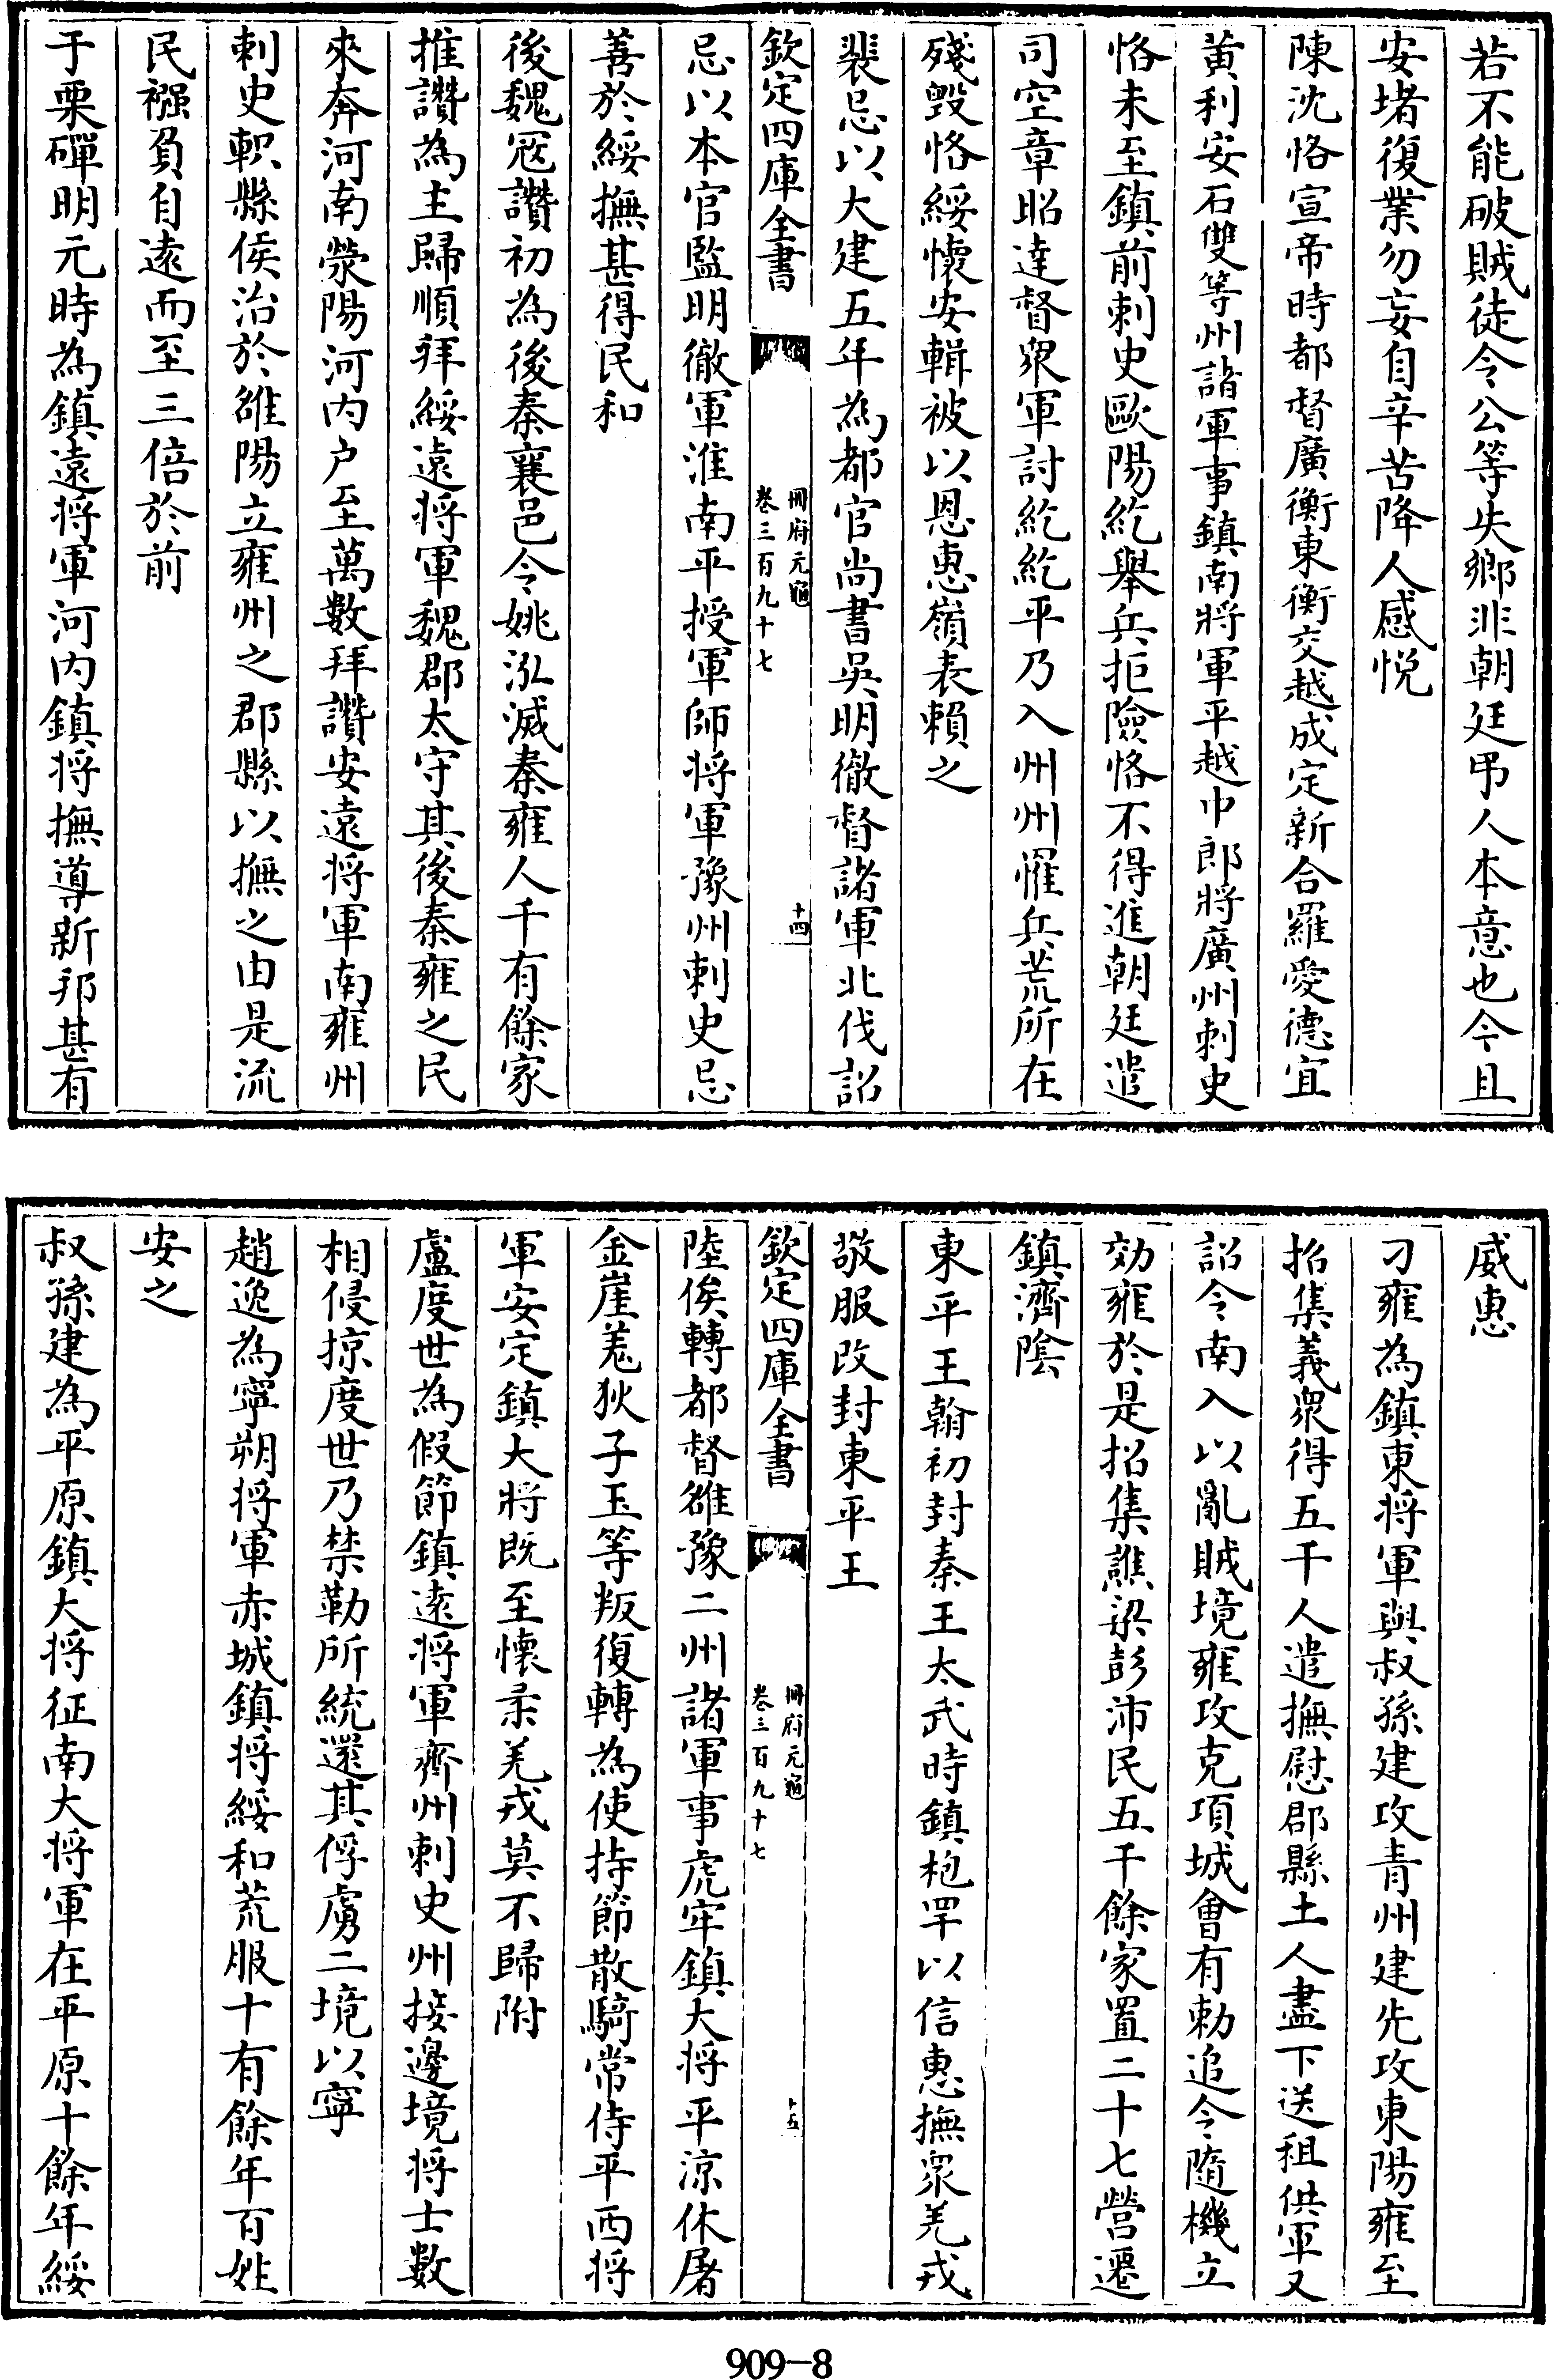 若不能破賊徒令公等失鄉非朝廷弔人本意也今且
安堵復業勿妄自辛苦降人感悅
陳沈恪宣帝時都督廣衡東衡交越成定新合羅愛德宜
黃利安石雙等州諸軍事鎮南將軍平越中郎將廣州刺史
恪未至鎮前刺史歐陽紇舉兵拒險恪不得進朝廷遣
司空章昭達督衆軍討紇紇平乃入州州罹兵荒所在
殘毀恪綏懷安輯被以恩惠嶺表賴之
裴忌以大建五年為都官尚書吳明徹督諸軍北伐詔
欽定四庫全書
冊府元龜
卷三百九十七
十四
忌以本官監明徹軍淮南平授軍師將軍豫州刺史忌
善於綏撫甚得民和
後魏寇讚初為後秦襄邑令姚泓滅秦雍人千有餘家
推讚為主歸順拜綏遠將軍魏郡太守其後秦雍之民
來奔河南滎陽河內户至萬數拜讚安遠將軍南雍州
刺史軹縣侯治於雒陽立雍州之郡縣以撫之由是流
民襁負自遠而至三倍於前
于栗磾明元時為鎮遠將軍河内鎮將撫導新邦甚有
威惠
刁雍為鎮東將軍與叔孫建攻青州建先攻東陽雍至
招集義衆得五千人遣撫慰郡縣土人盡下送租供軍又
詔令南入以亂賊境雍攻克項城會有勅追令隨機立
効雍於是招集譙梁彭沛民五千餘家置二十七營遷
鎮濟陰
東平王翰初封秦王太武時鎮枹罕以信惠撫衆羌戎
敬服改封東平王
欽定四庫全書
冊府元龜
卷三百九十七
十五
陸俟轉都督雒豫二州諸軍事虎牢鎮大將平涼休屠
金崖羗狄子玉等叛復轉為使持節散騎常侍平西將
軍安定鎮大將既至懷柔羌戎莫不歸附
盧度世為假節鎮遠將軍齊州刺史州接邊境將士數
相侵掠度世乃禁勒所統還其俘虜二境以寧
趙逸為寧朔將軍赤城鎮將綏和荒服十有餘年百姓
安之
叔孫建為平原鎮大將征南大將軍在平原十餘年綏
909-8